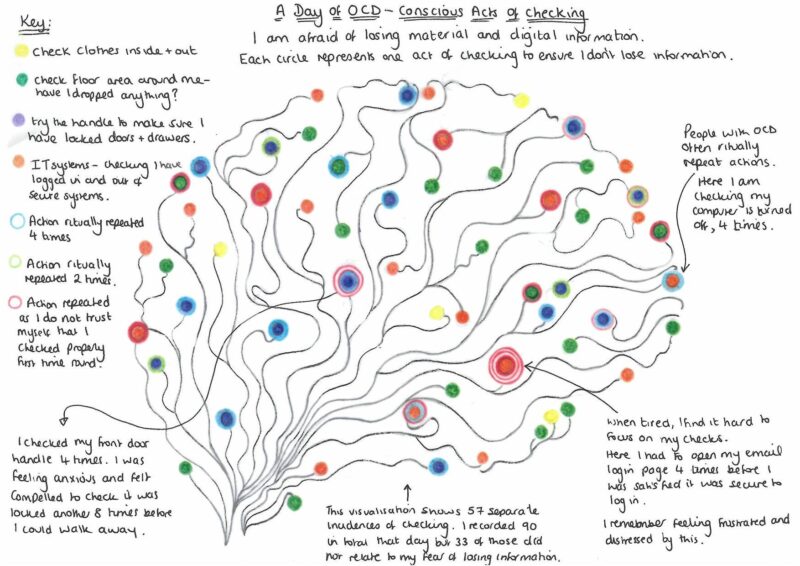 A Day of OCD - Conscious Acts of Checking
I am afraid of losing material and digital information.
Each circle represents one act of checking to ensure I don't lose information.
Key:
Check clothes inside + out
Check floor area around me -
have I dropped anything?
Try the handle to make sure I
have locked doors + drawers.
IT systems - checking I have
logged in and out of
secure systems.
Action ritually repeated
4 times
Action ritually
repeated 2 times.
Action repeated
as I do not trust
myself that I
checked properly
first time round.
People with OCD
often ritually
repeat actions.
Here I am
checking my
computer is turned
off, 4 times.
I checked my front door
handle 4 times. I was
feeling anxious and felt
compelled to check it was
locked another 8 times before
I could walk away.
This visualisation shows 57 separate
incidences of checking. I recorded 90
in total that day but 33 of those did
not relate to my fear of losing information.
When tired, I find it hard to
focus on my checks.
Here I had to open my email
login page 4 times before I
was satisfied it was secure to
log in.
I remember feeling frustrated and
distressed by this.